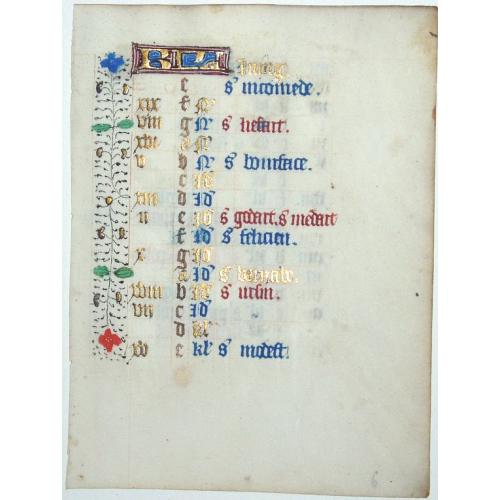 KL Juing
e s nicomede.
xix f N
viii g N s liefart.
xvi a N
v b N s boniface.
c Id
xiii d Id
ii e Id s godart. s medart
f Id s felicien.
x g Id
a Id s barnabe.
xviii b Id s ursin.
vii c Id
d kl
xv e kl s modest.
6